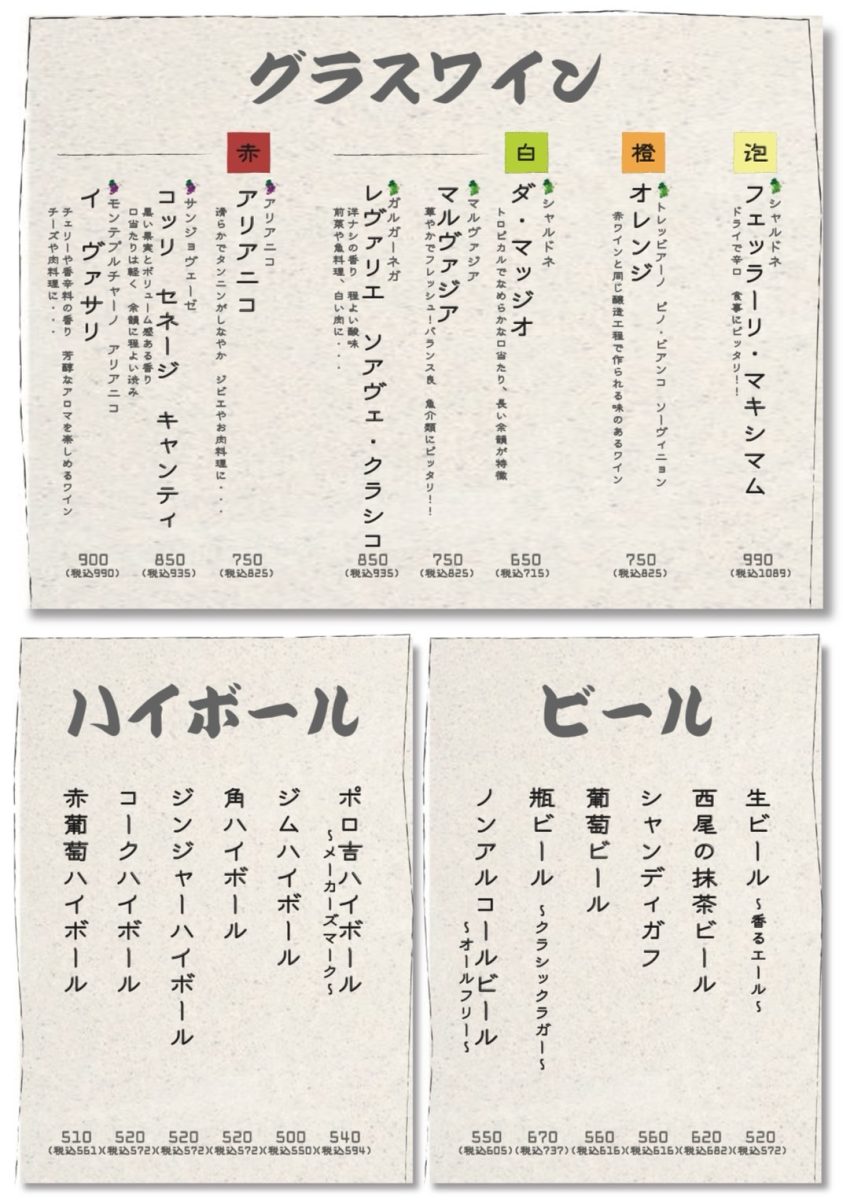 グラスワイン
泡
シャルドネ
フェッラーリ・マキシマム
ドライで辛口 食事にピッタリ!!
990
(税込1089)
橙
トレッビアーノ ピノ・ビアンコ ソーヴィニョン
オレンジ
赤ワインと同じ醸造工程で作られる味のあるワイン
750
(税込825)
白
シャルドネ
ダ・マッジオ
トロピカルでなめらかな口当たり、長い余韻が特徴
650
(税込715)
マルヴァジア
マルヴァジア
華やかでフレッシュ!バランス良 魚介類にピッタリ!!
750
(税込825)
ガルガーネガ
レヴァリエ ソアヴェ・クラシコ
洋ナシの香り 程よい酸味
前菜や魚料理、白い肉に・・・
850
(税込935)
赤
アリアニコ
アリアニコ
滑らかでタンニンがしなやか ジビエやお肉料理に・・・
750
(税込825)
サンジョヴェーゼ
コッリ セネージ キャンティ
黒い果実とボリューム感ある香り
口当たりは軽く 余韻に程よい渋み
850
(税込935)
モンテプルチャーノ アリアニコ
イ ヴァサリ
チェリーや香辛料の香り 芳醇なアロマを楽しめるワイン
チーズや肉料理に・・・
900
(税込990)
ハイボール
ポロ吉ハイボール
~メーカーズマーク~
540
(税込594)
ジムハイボール
500
(税込550)
角ハイボール
520
(税込572)
ジンジャーハイボール
520
(税込572)
コークハイボール
520
(税込572)
赤葡萄ハイボール
510
(税込561)
ビール
生ビール ~香るエール~
520
(税込572)
西尾の抹茶ビール
620
(税込682)
シャンディガフ
560
(税込616)
葡萄ビール
560
(税込616)
瓶ビール ~クラシックラガー~
670
(税込737)
ノンアルコールビール
~オールフリー~
550
(税込605)